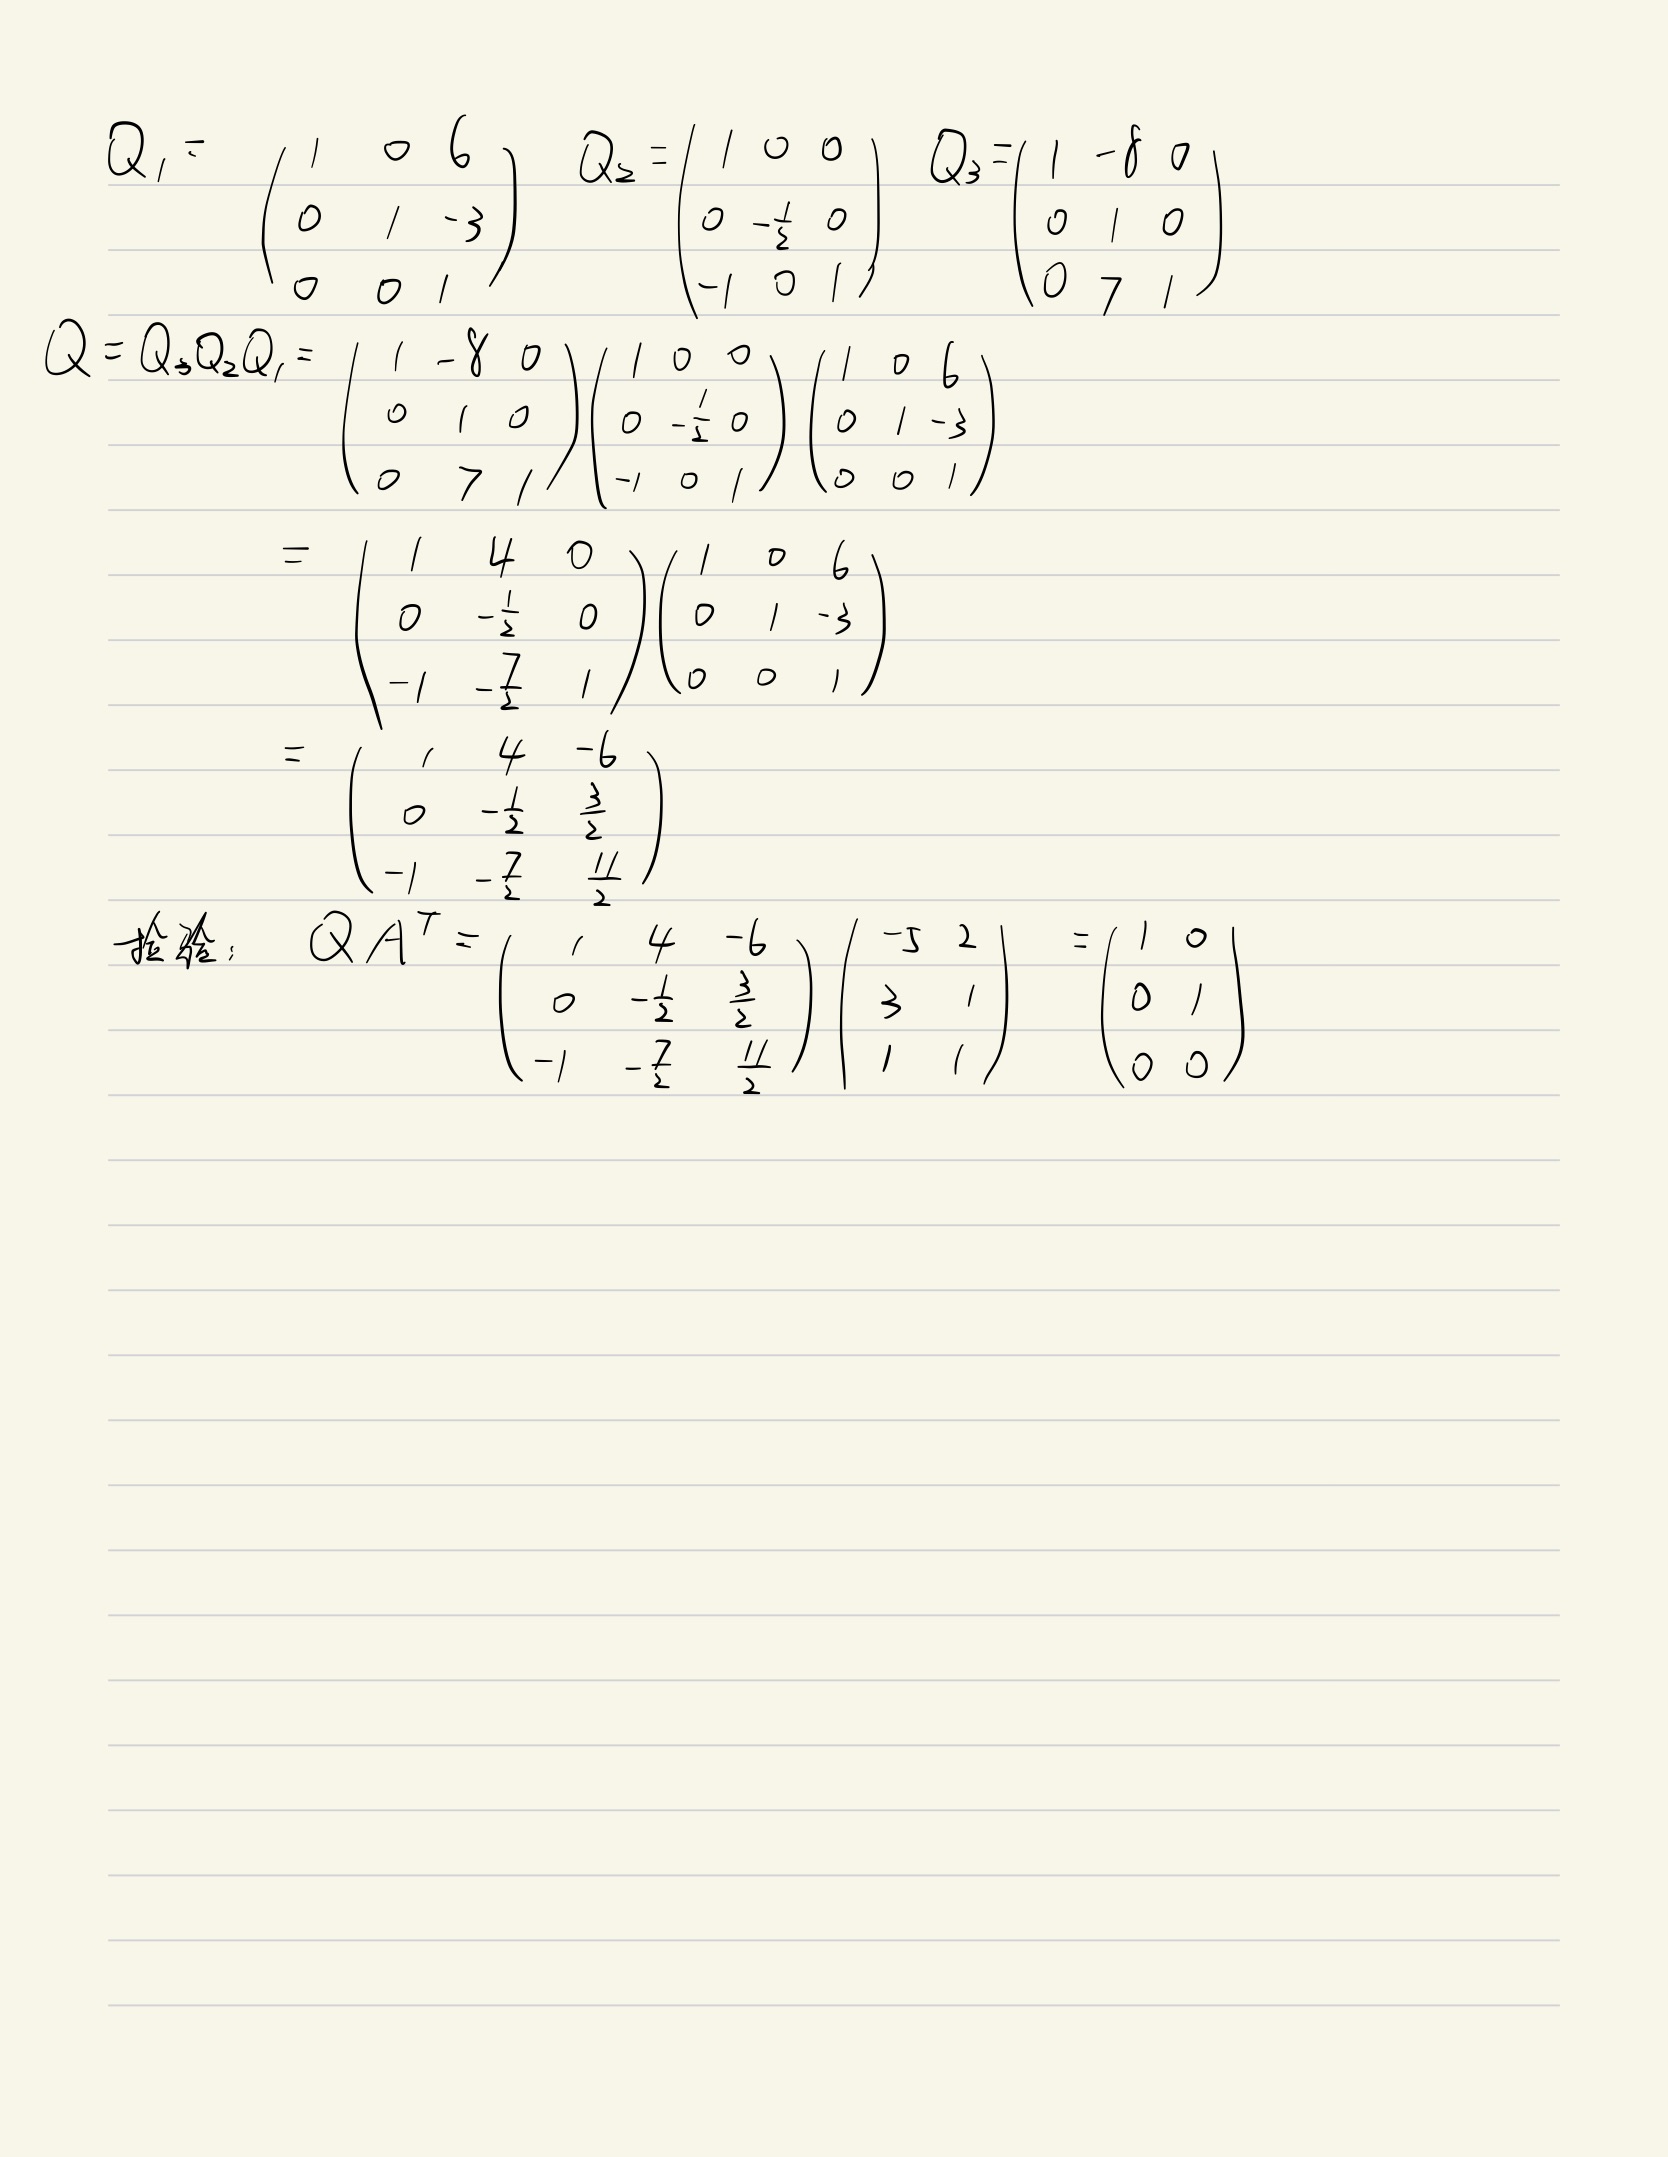 Q₁ = (1 0 6; 0 1 -3; 0 0 1) Q₂ = (1 0 0; 0 -1/2 0; -1 0 1) Q₃ = (1 -8 0; 0 1 0; 0 7 1)
Q = Q₃Q₂Q₁ = (1 -8 0; 0 1 0; 0 7 1)(1 0 0; 0 -1/2 0; -1 0 1)(1 0 6; 0 1 -3; 0 0 1)
= (1 4 0; 0 -1/2 0; -1 -7/2 1)(1 0 6; 0 1 -3; 0 0 1)
= (1 4 -6; 0 -1/2 3/2; -1 -7/2 11/2)
检验: QAᵀ = (1 4 -6; 0 -1/2 3/2; -1 -7/2 11/2)(-5 2; 3 1; 1 1) = (1 0; 0 1; 0 0)